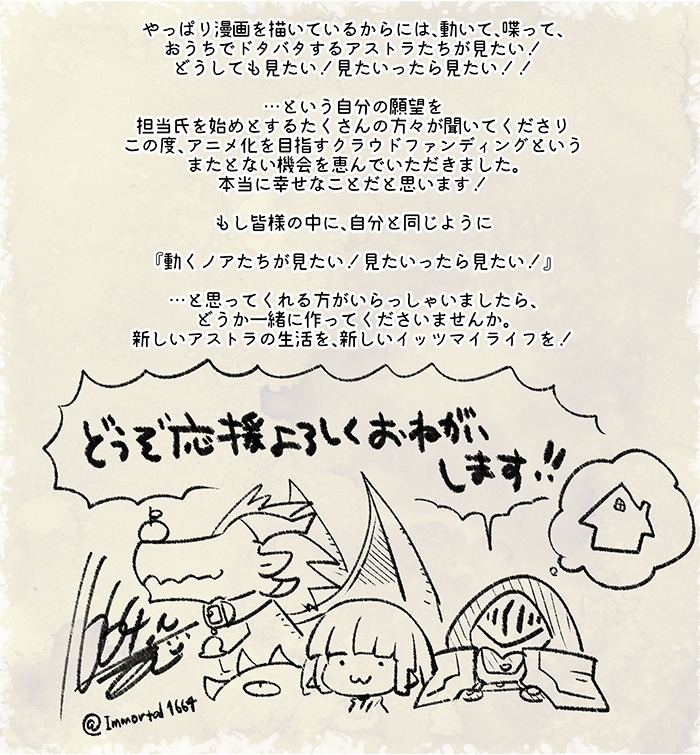 やっぱり漫画を描いているからには、動いて、喋って、
おうちでドタバタするアストラたちが見たい!
どうしても見たい!見たいったら見たい!!
…という自分の願望を
担当氏を始めとするたくさんの方々が聞いてくださり
この度、アニメ化を目指すクラウドファンディングという
またとない機会を恵んでいただきました。
本当に幸せなことだと思います!
もし皆様の中に、自分と同じように
『動くノアたちが見たい!見たいったら見たい!』
…と思ってくれる方がいらっしゃいましたら、
どうか一緒に作ってくださいませんか。
新しいアストラの生活を、新しいイッツマイライフを!
どうぞ応援よろしくおねがい
します!!
@Immortal1664